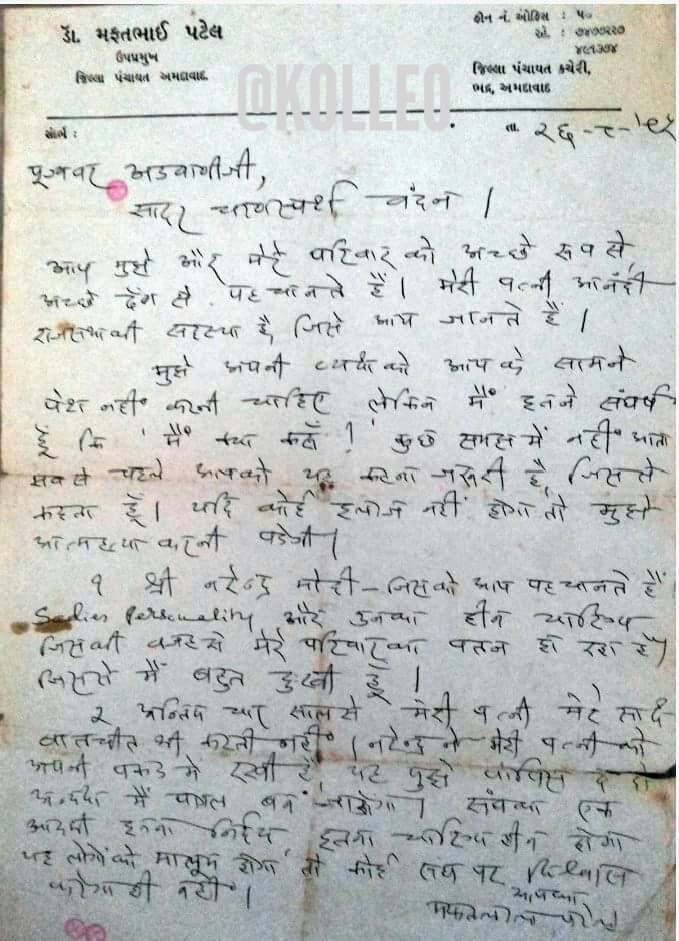 ડૉ. મફતભાઈ પટેલ
ઉપપ્રમુખ
જિલ્લા પંચાયત અમદાવાદ.
@KOLLEO
ફોન નં. ઓફિસ : ૫૦
જિલ્લા પંચાયત કચેરી,
ભદ્ર, અમદાવાદ
તા. ૨૬-
અડવાણીજી,
સાદર वंदन |
आप मुझे और मेरे परिवार को अच्छे रूप से,
अच्छे ढंग से पहचानते हैं । मेरी पत्नी आनंदी
सदस्या है, जिसे आप जानते हैं ।
मुझे अपनी व्यथा को आपके सामने
पेश नहीं करनी चाहिए लेकिन मैं इतने संघर्ष
हूँ कि मैं क्या करूँ ! कुछ समझ में नहीं आता
सबसे पहले आपको यह कहना जरूरी है, जिससे
कहता हूँ । यदि कोई इलाज नहीं होगा तो मुझे
आत्महत्या करनी पडेगी ।
१ श्री नरेन्द्र मोदी - जिसको आप पहचानते हैं ।
Personality और उनका हीन चारित्र्य
जिसकी वजह से मेरे परिवार का पतन हो रहा है,
जिससे मैं बहुत दुःखी हूँ ।
२ अन्तिम चार साल से मेरी पत्नी मेरे साथ
बातचीत भी करती नहीं । नरेन्द्र ने मेरी पत्नी को
अपनी पकड में रखी है, यह मुझे वापिस दे दो
अन्यथा मैं पागल बन जाऊंगा । संघ का एक
आदमी इतना निर्दय, इतना चारित्र्य हीन होगा
यह लोगों को मालूम होगा तो कोई संघ पर विश्वास
करेगा ही नहीं ।
आपका